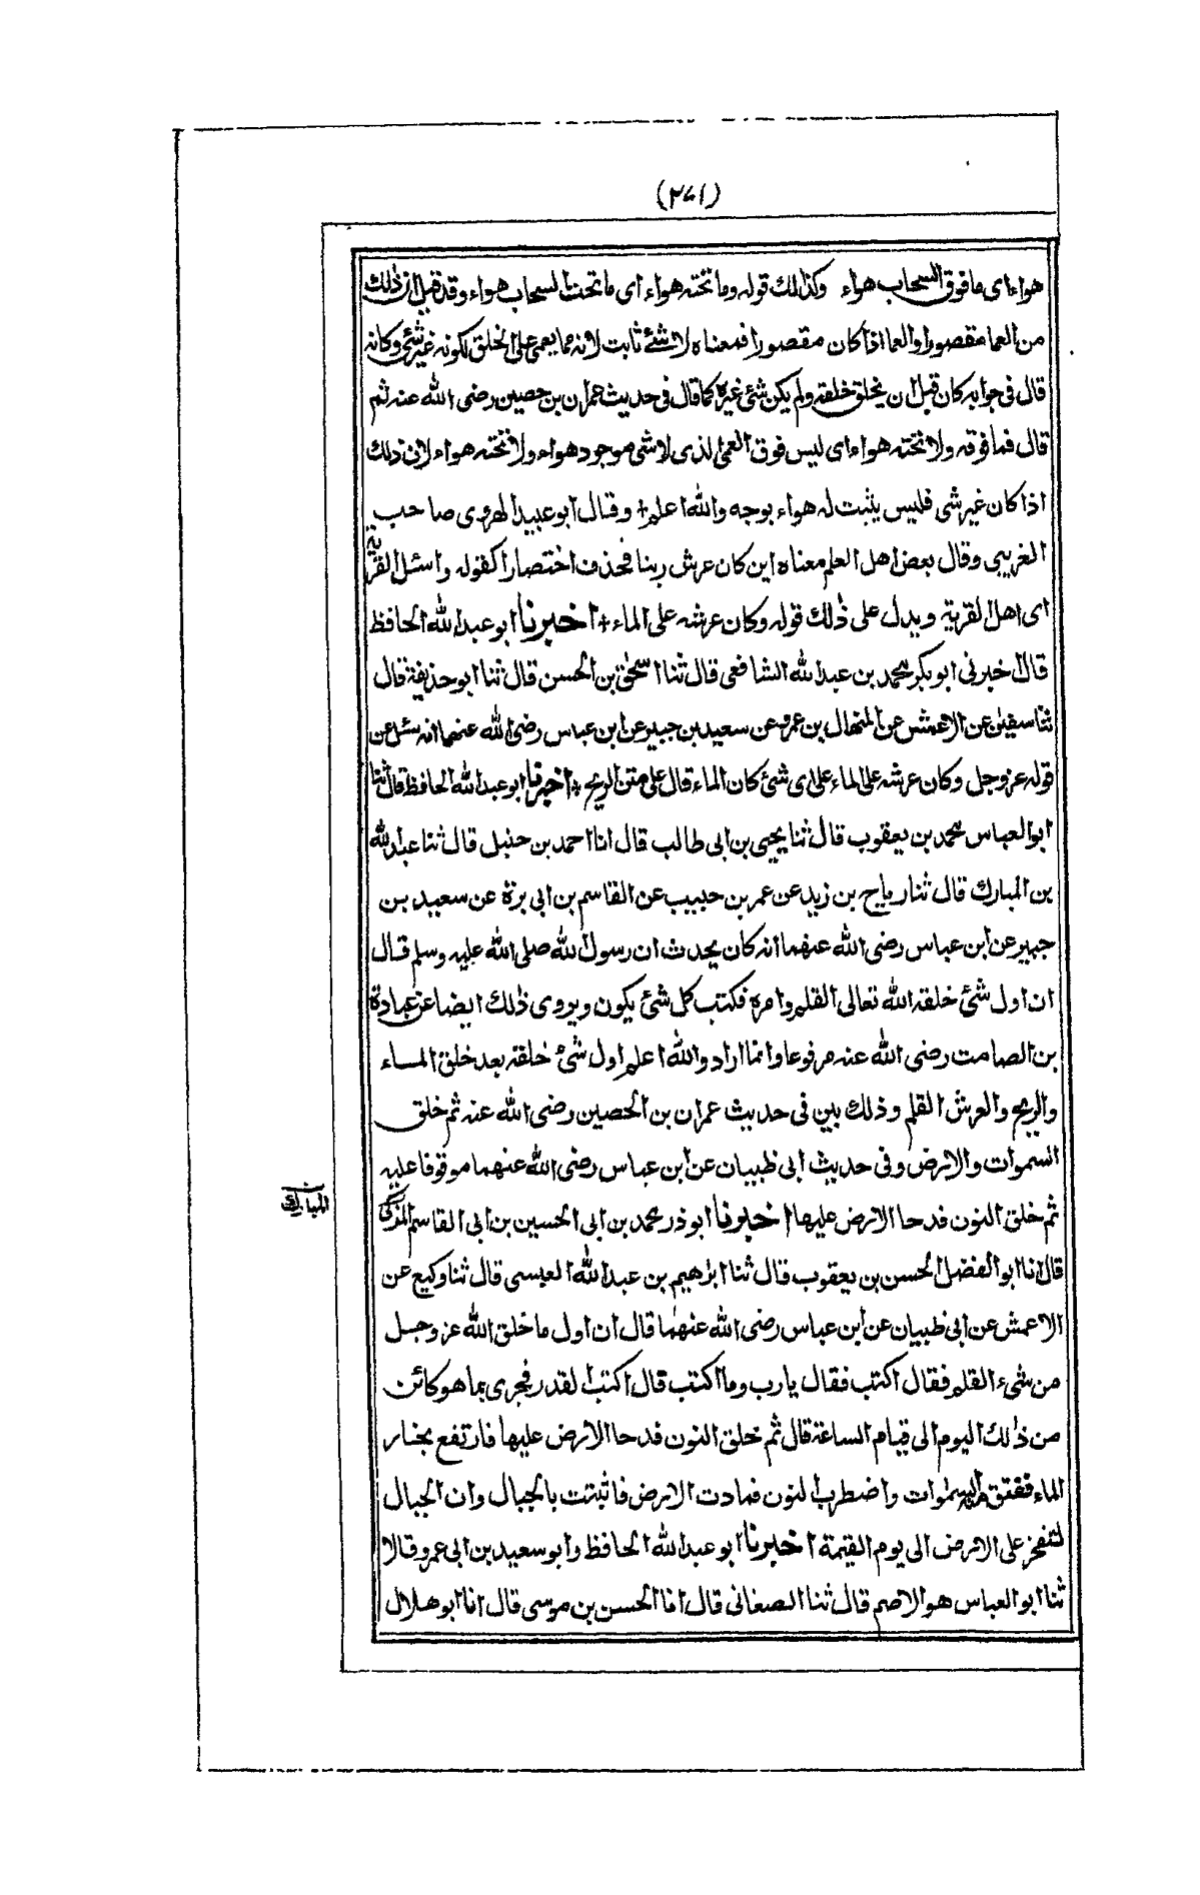 (٢٧١)
هواء اى ما فوق السحاب هواء وكذلك قوله وما تحته هواء اى ما تحت السحاب هواء وقد قيل ان ذلك
من العما مقصورا والعما اذا كان مقصورا فمعناه لا شئ ثابت لانه مما يعمى على الخلق لكونه غير شئ وكانه
قال فى جوابه كان قبل ان يخلق خلقه ولم يكن شئ غيره كما قال فى حديث عمران بن حصين رضى الله عنه ثم
قال فما فوقه ولا تحته هواء اى ليس فوق العمى الذى لا شى موجود هواء ولا تحته هواء لان ذلك
اذا كان غير شى فليس يثبت له هواء بوجه والله اعلم + وقال ابو عبيد الهروى صاحب
الغريبى وقال بعض اهل العلم معناه اين كان عرش ربنا فحذف اختصارا كقوله واسئل القرية
اى اهل القرية ويدل على ذلك قوله وكان عرشه على الماء + اخبرنا ابو عبد الله الحافظ
قال اخبرنى ابو بكر محمد بن عبد الله الشافعى قال ثنا اسحٰق بن الحسن قال ثنا ابو حذيفة قال
ثنا سفيٰن عن الاعمش عن المنهال بن عمرو عن سعيد بن جبير عن ابن عباس رضى الله عنهما انه سئل عن
قوله عز وجل وكان عرشه على الماء على اى شئ كان الماء قال على متن الريح + اخبرنا ابو عبد الله الحافظ قال ثنا
ابو العباس محمد بن يعقوب قال ثنا يحيى بن ابى طالب قال انا احمد بن حنبل قال ثنا عبد الله
بن المبارك قال ثنا رباح بن زيد عن عمر بن حبيب عن القاسم بن ابى بزة عن سعيد بن
جبير عن ابن عباس رضى الله عنهما انه كان يحدث ان رسول الله صلى الله عليه وسلم قال
ان اول شئ خلقه الله تعالى القلم وامره فكتب كل شئ يكون ويروى ذلك ايضا عن عبادة
بن الصامت رضى الله عنه مرفوعا وانما اراد والله اعلم اول شئ خلقه بعد خلق الماء
والريح والعرش القلم وذلك بين فى حديث عمران بن الحصين رضى الله عنه ثم خلق
السموات والارض وفى حديث ابى ظبيان عن ابن عباس رضى الله عنهما موقوفا عليه
ثم خلق النون فدحا الارض عليها اخبرنا ابو ذر محمد بن ابى الحسين بن ابى القاسم المذكى
المبارك
قال انا ابو الفضل الحسن بن يعقوب قال ثنا ابرٰهيم بن عبد الله العبسى قال ثنا وكيع عن
الاعمش عن ابى ظبيان عن ابن عباس رضى الله عنهما قال ان اول ما خلق الله عز وجل
من شىء القلم فقال اكتب فقال يارب وما اكتب قال اكتب القدر فجرى بما هو كائن
من ذٰلك اليوم الى قيام الساعة قال ثم خلق النون فدحا الارض عليها فارتفع بخار
الماء ففتق منه السمٰوات واضطرب النون فمادت الارض فاثبتت بالجبال وان الجبال
لتفخر على الارض الى يوم القيمة اخبرنا ابو عبد الله الحافظ وابو سعيد بن ابى عمرو قالا
ثنا ابو العباس هو الاصم قال ثنا الصغانى قال انا الحسن بن موسى قال انا ابو هلال